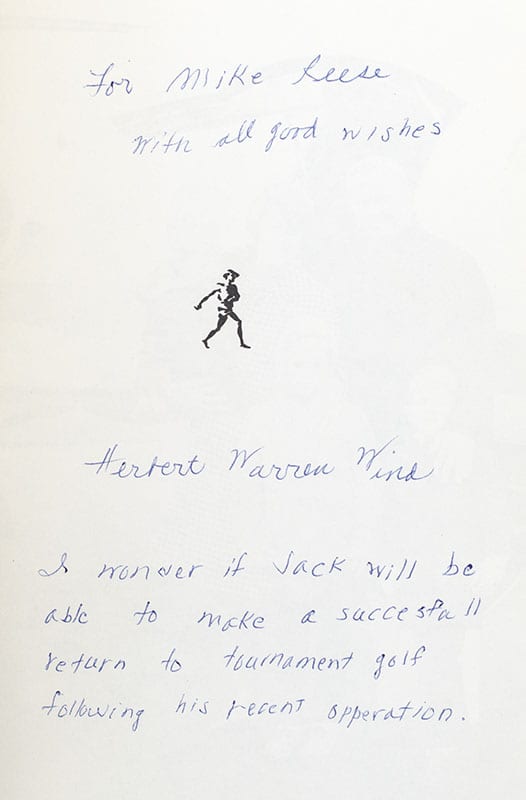 For Mike Reese
with all good wishes
Herbert Warren Wind
I wonder if Jack will be
able to make a succesfull
return to tournament golf
following his recent opperation.